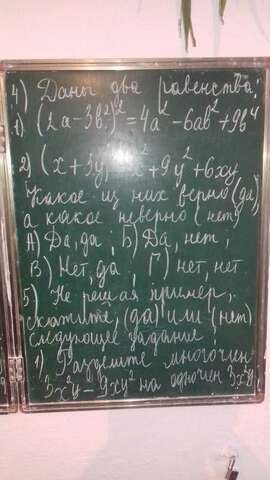 4) Даны два равенства:
1) (2a-3b²)² = 4a² - 6ab² + 9b⁴
2) (x+3y)² = x² + 9y² + 6xy
Какое из них верно (да),
а какое неверно (нет)
А) Да, да; Б) Да, нет;
В) Нет, да; Г) нет, нет
5) Не решая пример,
скажите, (да) или (нет)
следующее задание:
1) Разделите многочлен
3x²y - 9xy² на одночлен 3x²y